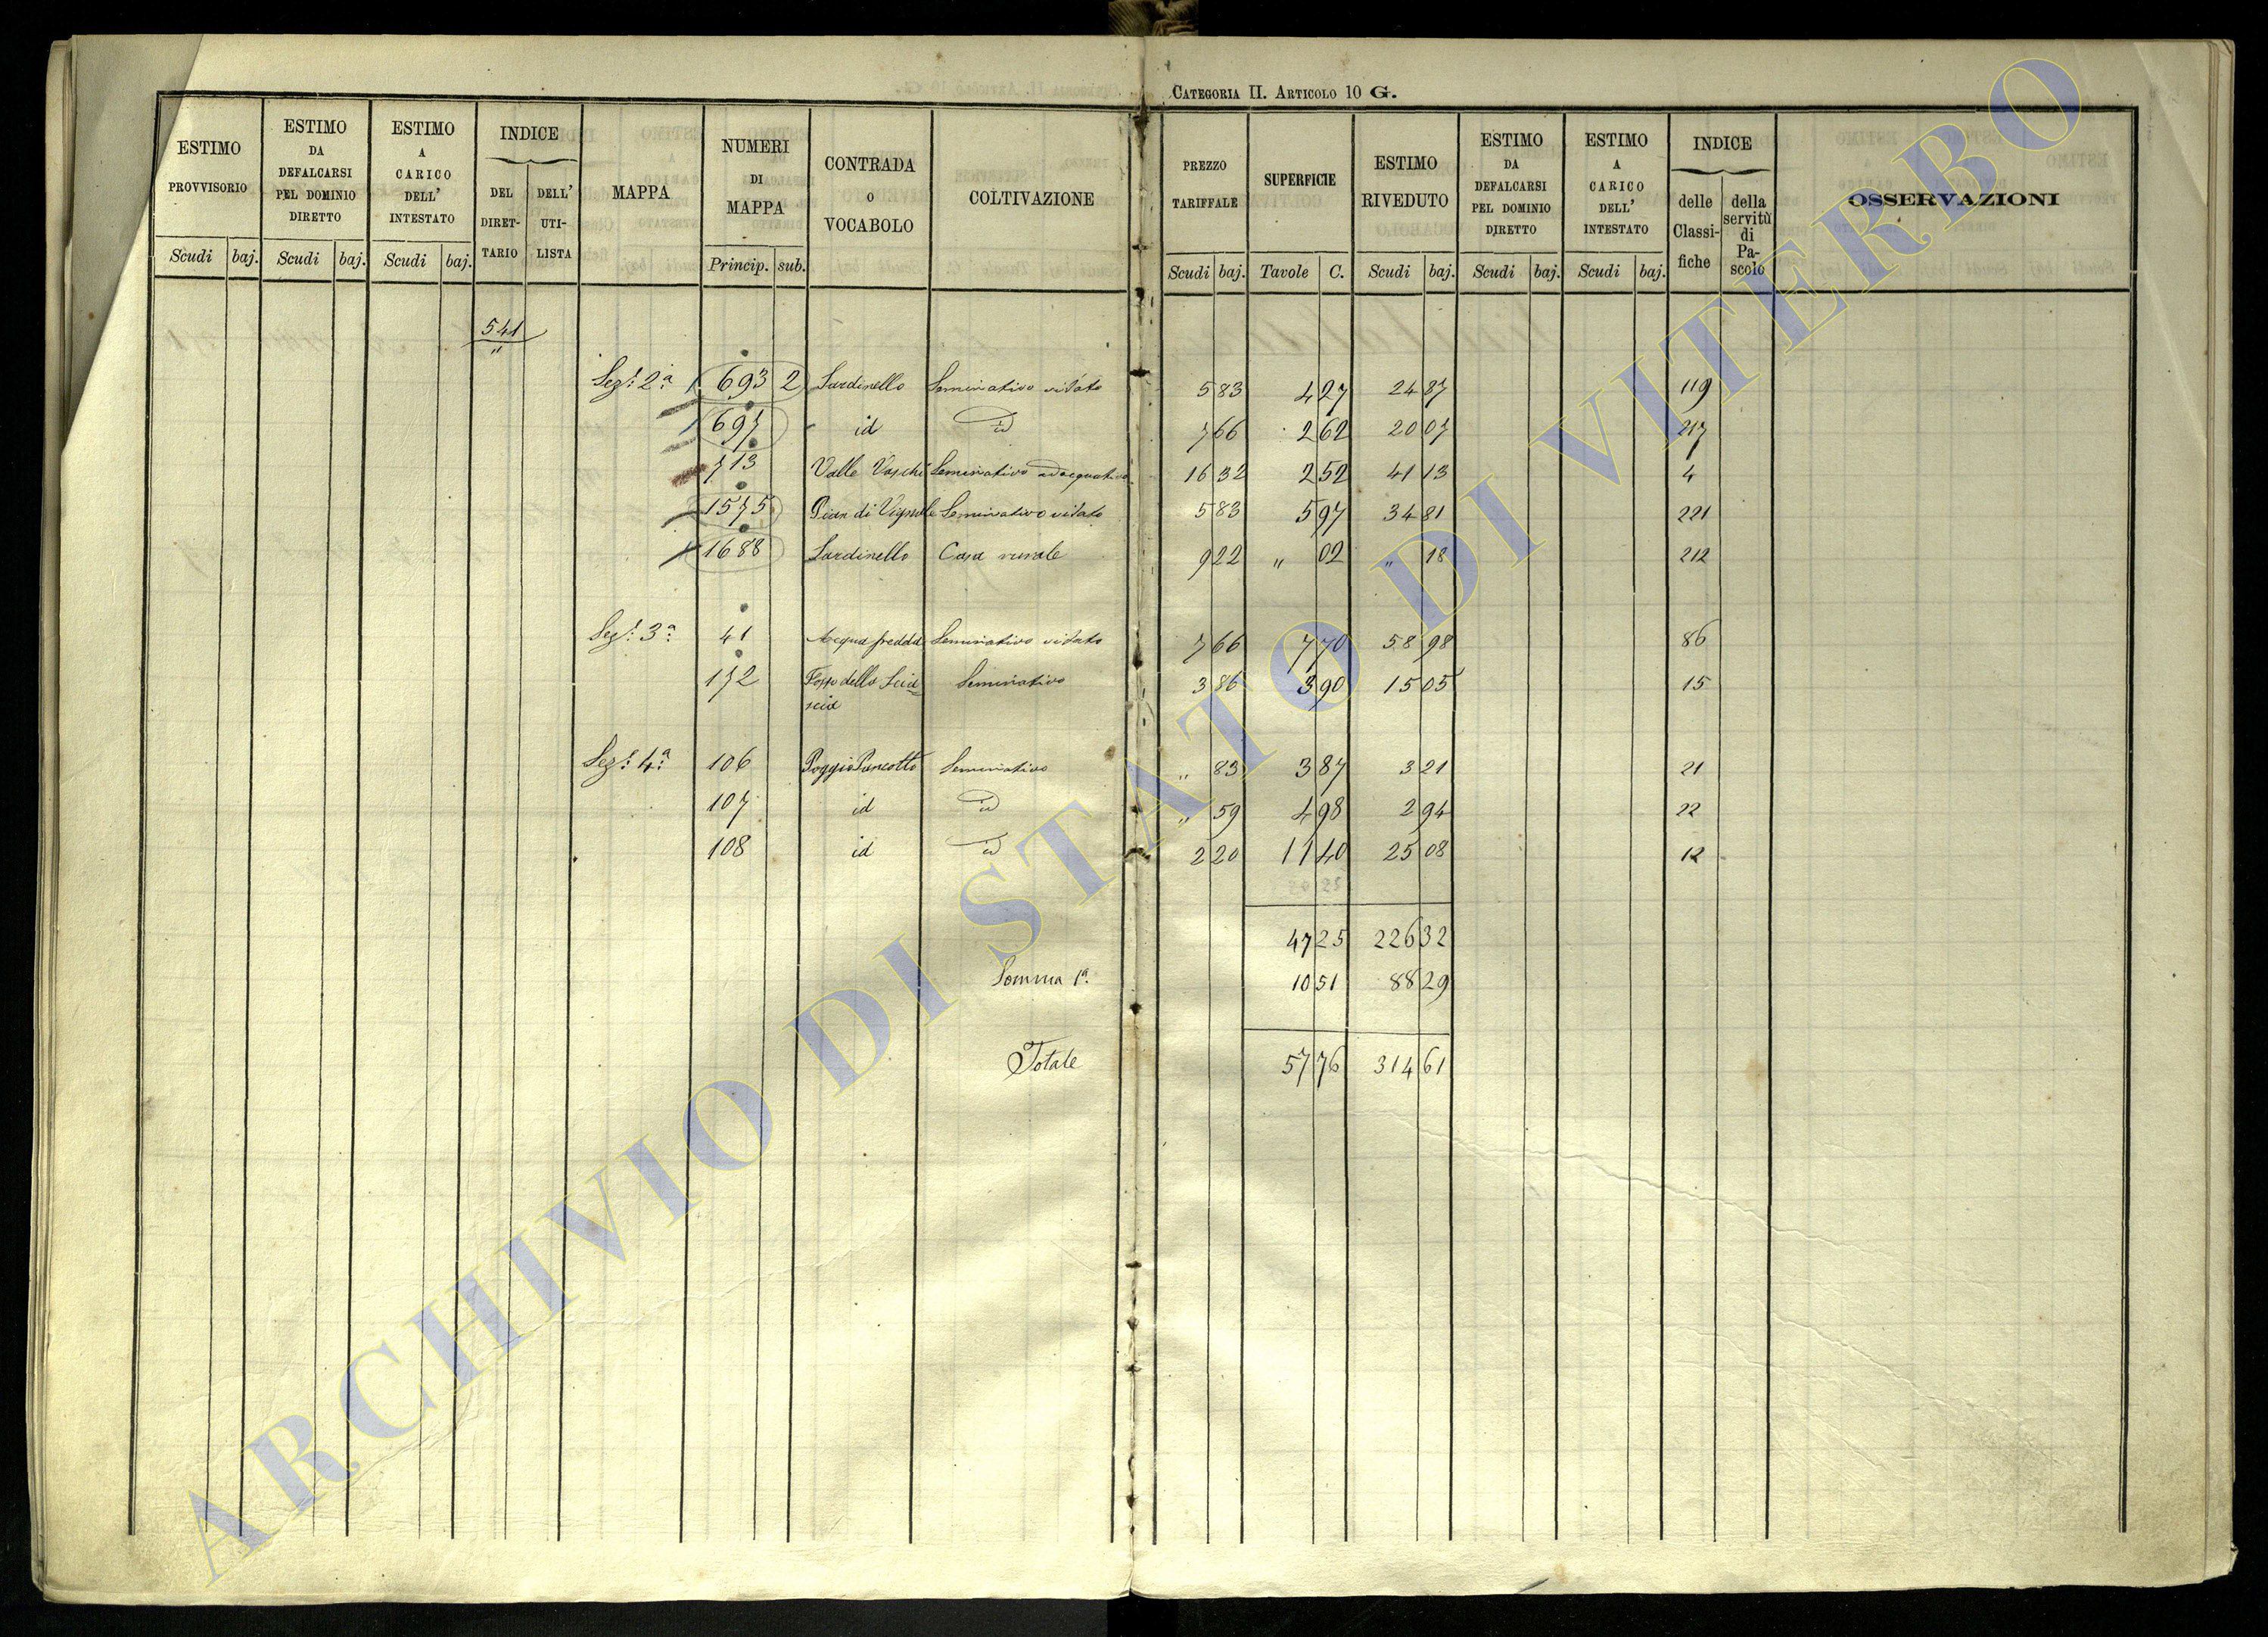 CATEGORIA II. ARTICOLO 10 G.
ESTIMO PROVVISORIO
ESTIMO DA DEFALCARSI PEL DOMINIO DIRETTO
ESTIMO A CARICO DELL' INTESTATO
INDICE
DEL DIRETTARIO
DELL' UTILISTA
MAPPA
NUMERI DI MAPPA
CONTRADA o VOCABOLO
COLTIVAZIONE
PREZZO TARIFFALE
SUPERFICIE
ESTIMO RIVEDUTO
ESTIMO DA DEFALCARSI PEL DOMINIO DIRETTO
ESTIMO A CARICO DELL' INTESTATO
INDICE
delle Classifiche
della servitù di Pascolo
OSSERVAZIONI
Scudi baj. Scudi baj. Scudi baj. Princip. sub. Scudi baj. Tavole C. Scudi baj. Scudi baj. Scudi baj.
541
"
Sez: 2ª 693 2 Sardinello Seminativo vitato 5 83 4 27 24 87 119
697 id id 7 66 2 62 20 07 217
713 Valle Vaschi Seminativo adacquativo 16 32 2 52 41 13 4
1575 Pian di Vignale Seminativo vitato 5 83 5 97 34 81 221
1688 Sardinello Casa rurale 9 22 " 02 " 18 212
Sez: 3ª 41 Acqua fredda Seminativo vitato 7 66 7 70 58 98 86
172 Fosso della Scia= Seminativo 3 86 3 90 15 05 15
scia
Sez: 4ª 106 Poggio Pancotto Seminativo " 83 3 87 3 21 21
107 id id " 59 4 98 2 94 22
108 id id 2 20 11 40 25 08 12
47 25 226 32
Somma 1ª. 10 51 88 29
Totale 57 76 314 61
ARCHIVIO DI STATO DI VITERBO